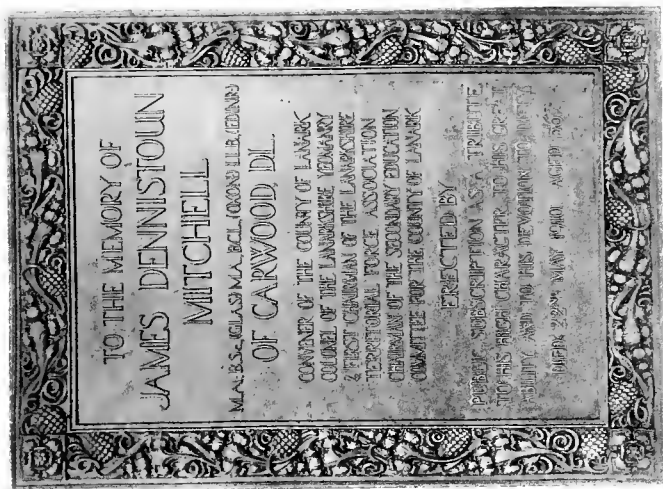 TO THE MEMORY OF
JAMES DENNISTOUN
MITCHELL
M.A., B.Sc., (GLAS.) M.A., B.C.L., (OXON) LL.B., (EDINR)
OF CARWOOD, DL.
CONVENER OF THE COUNTY OF LANARK
COLONEL OF THE LANARKSHIRE YEOMANRY
& FIRST CHAIRMAN OF THE LANARKSHIRE
TERRITORIAL FORCE ASSOCIATION
CHAIRMAN OF THE SECONDARY EDUCATION
COMMITTEE FOR THE COUNTY OF LANARK
ERECTED BY
PUBLIC SUBSCRIPTION AS A TRIBUTE
TO HIS HIGH CHARACTER, TO HIS GREAT
ABILITY AND TO HIS DEVOTION TO
DIED 22ND MAY AGED